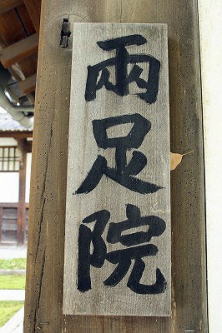 兩足院